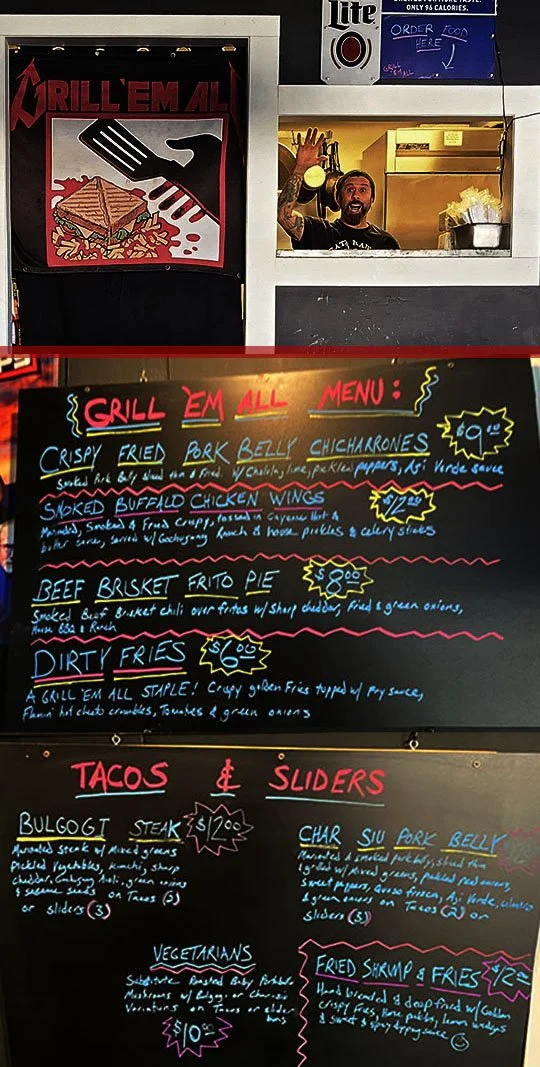 ONLY 96 CALORIES.
Lite
ORDER FOOD
HERE
GRILL
'EM ALL
GRILL 'EM ALL
GRILL 'EM ALL MENU:
CRISPY FRIED PORK BELLY CHICHARRONES
$9.00
Smoked Pork Belly sliced thin & Fried. w/ Cholula, lime, pickled peppers, Aji Verde sauce
SMOKED BUFFALO CHICKEN WINGS
$12.00
Marinated, Smoked & Fried Crispy, tossed in Cayenne Hot &
butter sauce, served w/ Gochujang Ranch & house pickles & celery sticks
BEEF BRISKET FRITO PIE
$8.00
Smoked Beef Brisket chili over fritos w/ sharp cheddar, Fried & green onions,
House BBQ & Ranch
DIRTY FRIES
$6.00
A GRILL 'EM ALL STAPLE! Crispy golden Fries topped w/ Fry sauce,
Flamin' hot cheeto crumbles, Tomatoes & green onions
TACOS & SLIDERS
BULGOGI STEAK
$12.00
Marinated steak w/ Mixed greens
Pickled Vegetables, Kimchi, sharp
cheddar, Gochujang Aioli, green onions
& sesame seeds on Tacos (2)
or sliders (3)
CHAR SIU PORK BELLY
Marinated & smoked pork belly, sliced thin
& grilled w/ Mixed greens, pickled red onions,
Sweet peppers, Queso fresco, Aji Verde, cilantro
& green onions on Tacos (2) or
sliders (3)
VEGETARIANS
Substitute Roasted Baby Portobello
Mushrooms w/ Bulgogi or Char-siu
Variations on Tacos or slider
buns
$10.00
FRIED SHRIMP & FRIES
$12.00
Hand breaded & deep fried w/ Golden
crispy Fries, House pickles, lemon wedges
& sweet & spicy dipping sauce